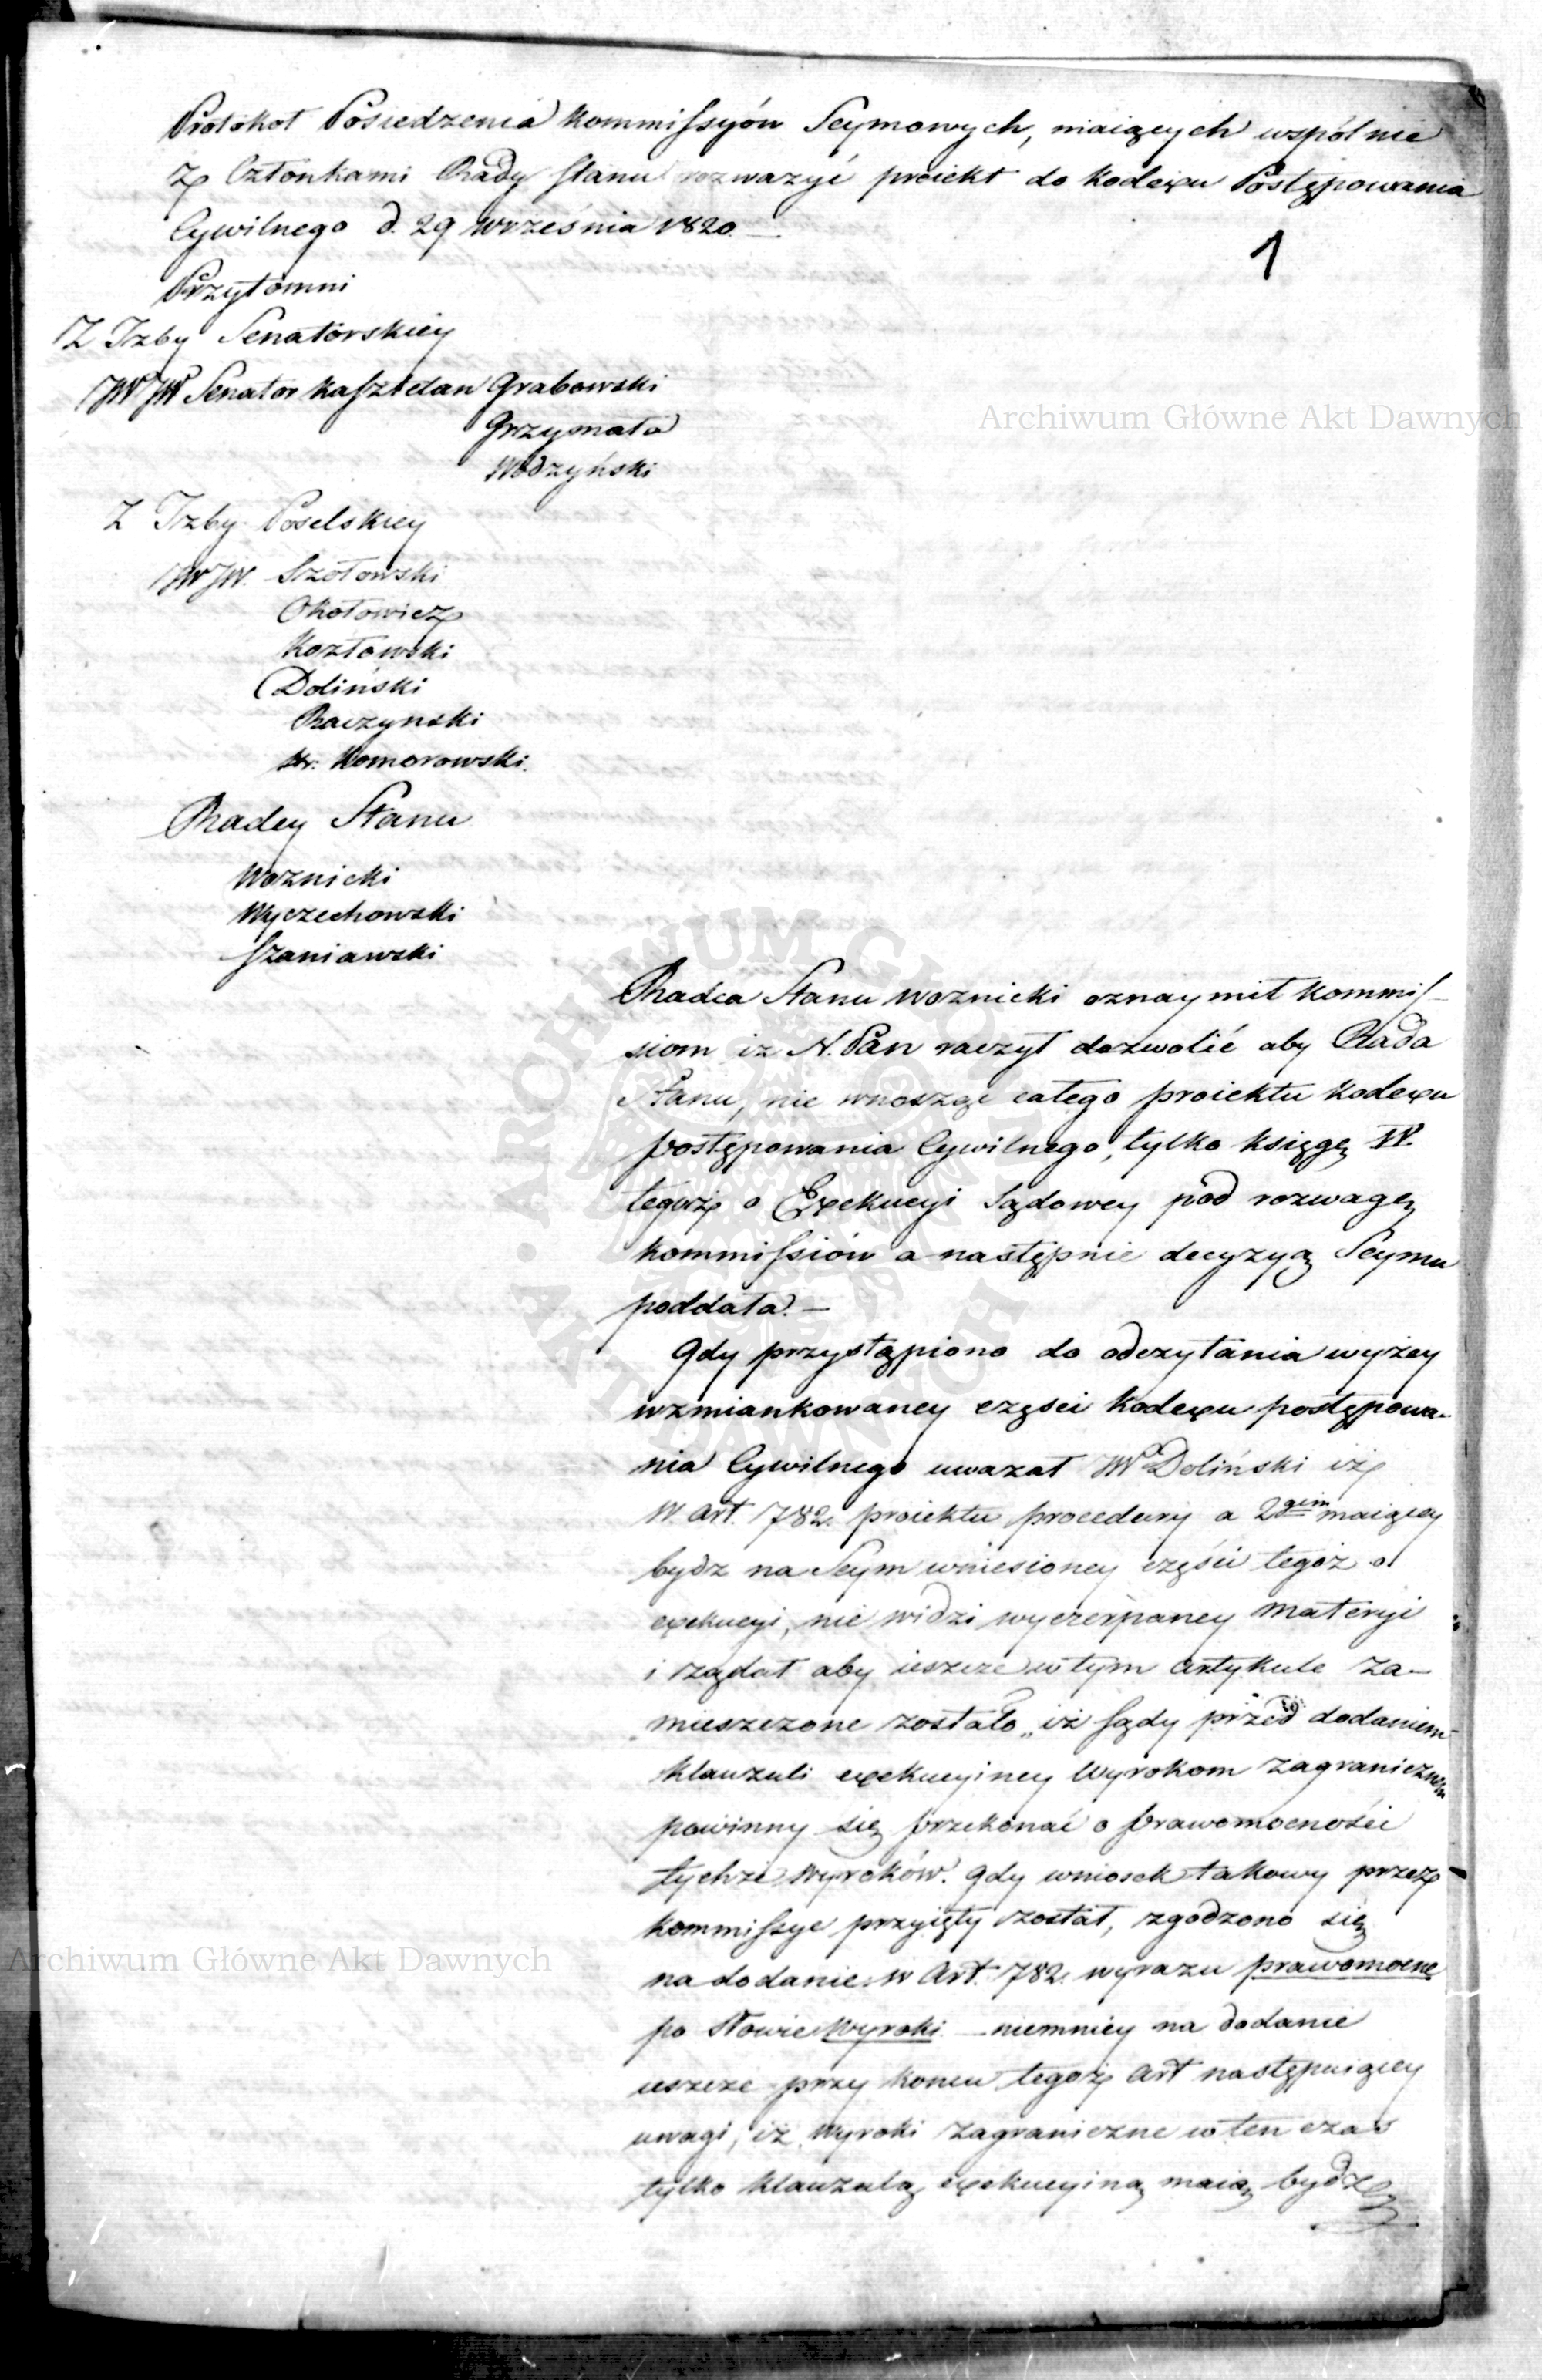 Protokoł Posiedzenia Kommissyów Seymowych, maiących wspólnie
z Członkami Rady Stanu rozważyć proiekt do Kodexu Postępowania
Cywilnego d. 29 Września 1820. —
1
Przytomni
Z Izby Senatorskiey
JW JW Senator Kasztelan Grabowski
Grzymała
Wodzyński
Z Izby Poselskiey
JW JW. Szołowski
Okołowicz
Kozłowski
Doliński
Raczynski
Hr. Komorowski.
Radcy Stanu
Woznicki
Wyczechowski
Szaniawski
Radca Stanu Woznicki oznaymił Kommis-
siom iż N. Pan raczył dozwolić aby Rada
Stanu, nie wnosząc całego proiektu Kodexu
postępowania Cywilnego, tylko księgę IV.
tegoż o Exekucyi Sądowey pod rozwagę
Kommissiów a następnie decyzyą Seymu
poddała. —
Gdy przystąpiono do odczytania wyżey
wzmiankowaney części Kodexu postępowa-
nia Cywilnego uważał JW Doliński iż
w Art. 782. proiektu procedury a 2gim maiącey
bydz na Seym wniesioney części tegoż o
exekucyi, nie widzi wyczerpaney materyi
i żądał aby ieszcze w tym artykule za-
mieszczone zostało „iż Sądy przed dodaniem
klauzuli exekucyiney Wyrokom zagranicznem
powinny się przekonać o prawomocności
tychże Wyroków. Gdy wniosek takowy przez
Kommissye przyięty został, zgodzono się
na dodanie w Art. 782. wyrazu prawomocne
po słowie Wyroki — niemniey na dodanie
ieszcze przy końcu tegoż Art następuiącey
uwagi, iż Wyroki zagraniczne w ten czas
tylko klauzulą exekucyiną maią bydz
Archiwum Główne Akt Dawnych
Archiwum Główne Akt Dawnych
ARCHIWUM GŁÓWNE AKT DAWNYCH